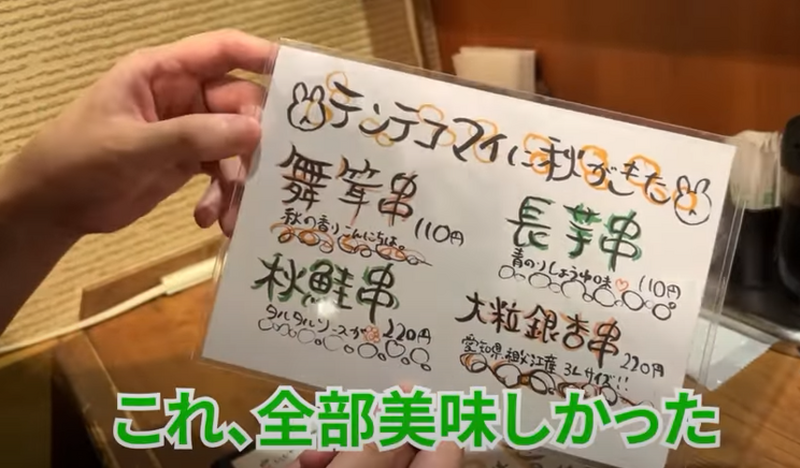 テンテコマイに秋がきた
舞茸串
110円
秋の香りこんにちは。
長芋串
青のりしょうゆ味♡ 110円
秋鮭串
タルタルソースが 220円
大粒銀杏串
220円
愛知県祖父江産 3Lサイズ!!
これ、全部美味しかった